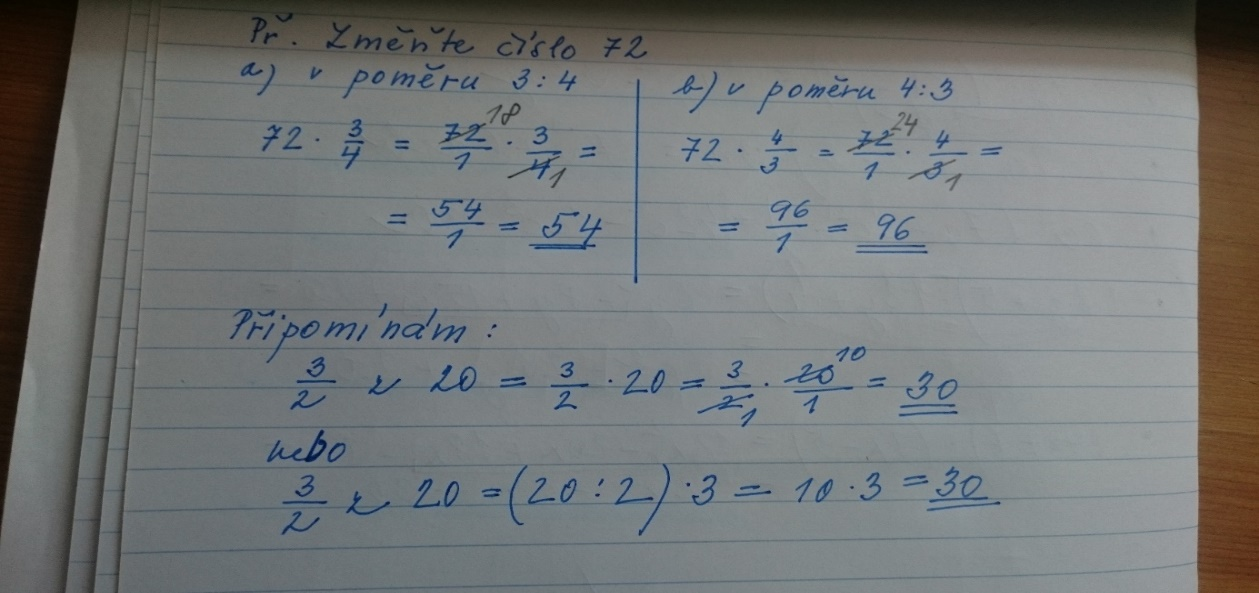 Př. Změňte číslo 72
a) v poměru 3:4
72 · 3/4 = 72/1 18 · 3/4 1 =
= 54/1 = 54
b) v poměru 4:3
72 · 4/3 = 72/1 24 · 4/3 1 =
= 96/1 = 96
Připomínám:
3/2 z 20 = 3/2 · 20 = 3/2 1 · 20/1 10 = 30
nebo
3/2 z 20 = (20:2) · 3 = 10 · 3 = 30